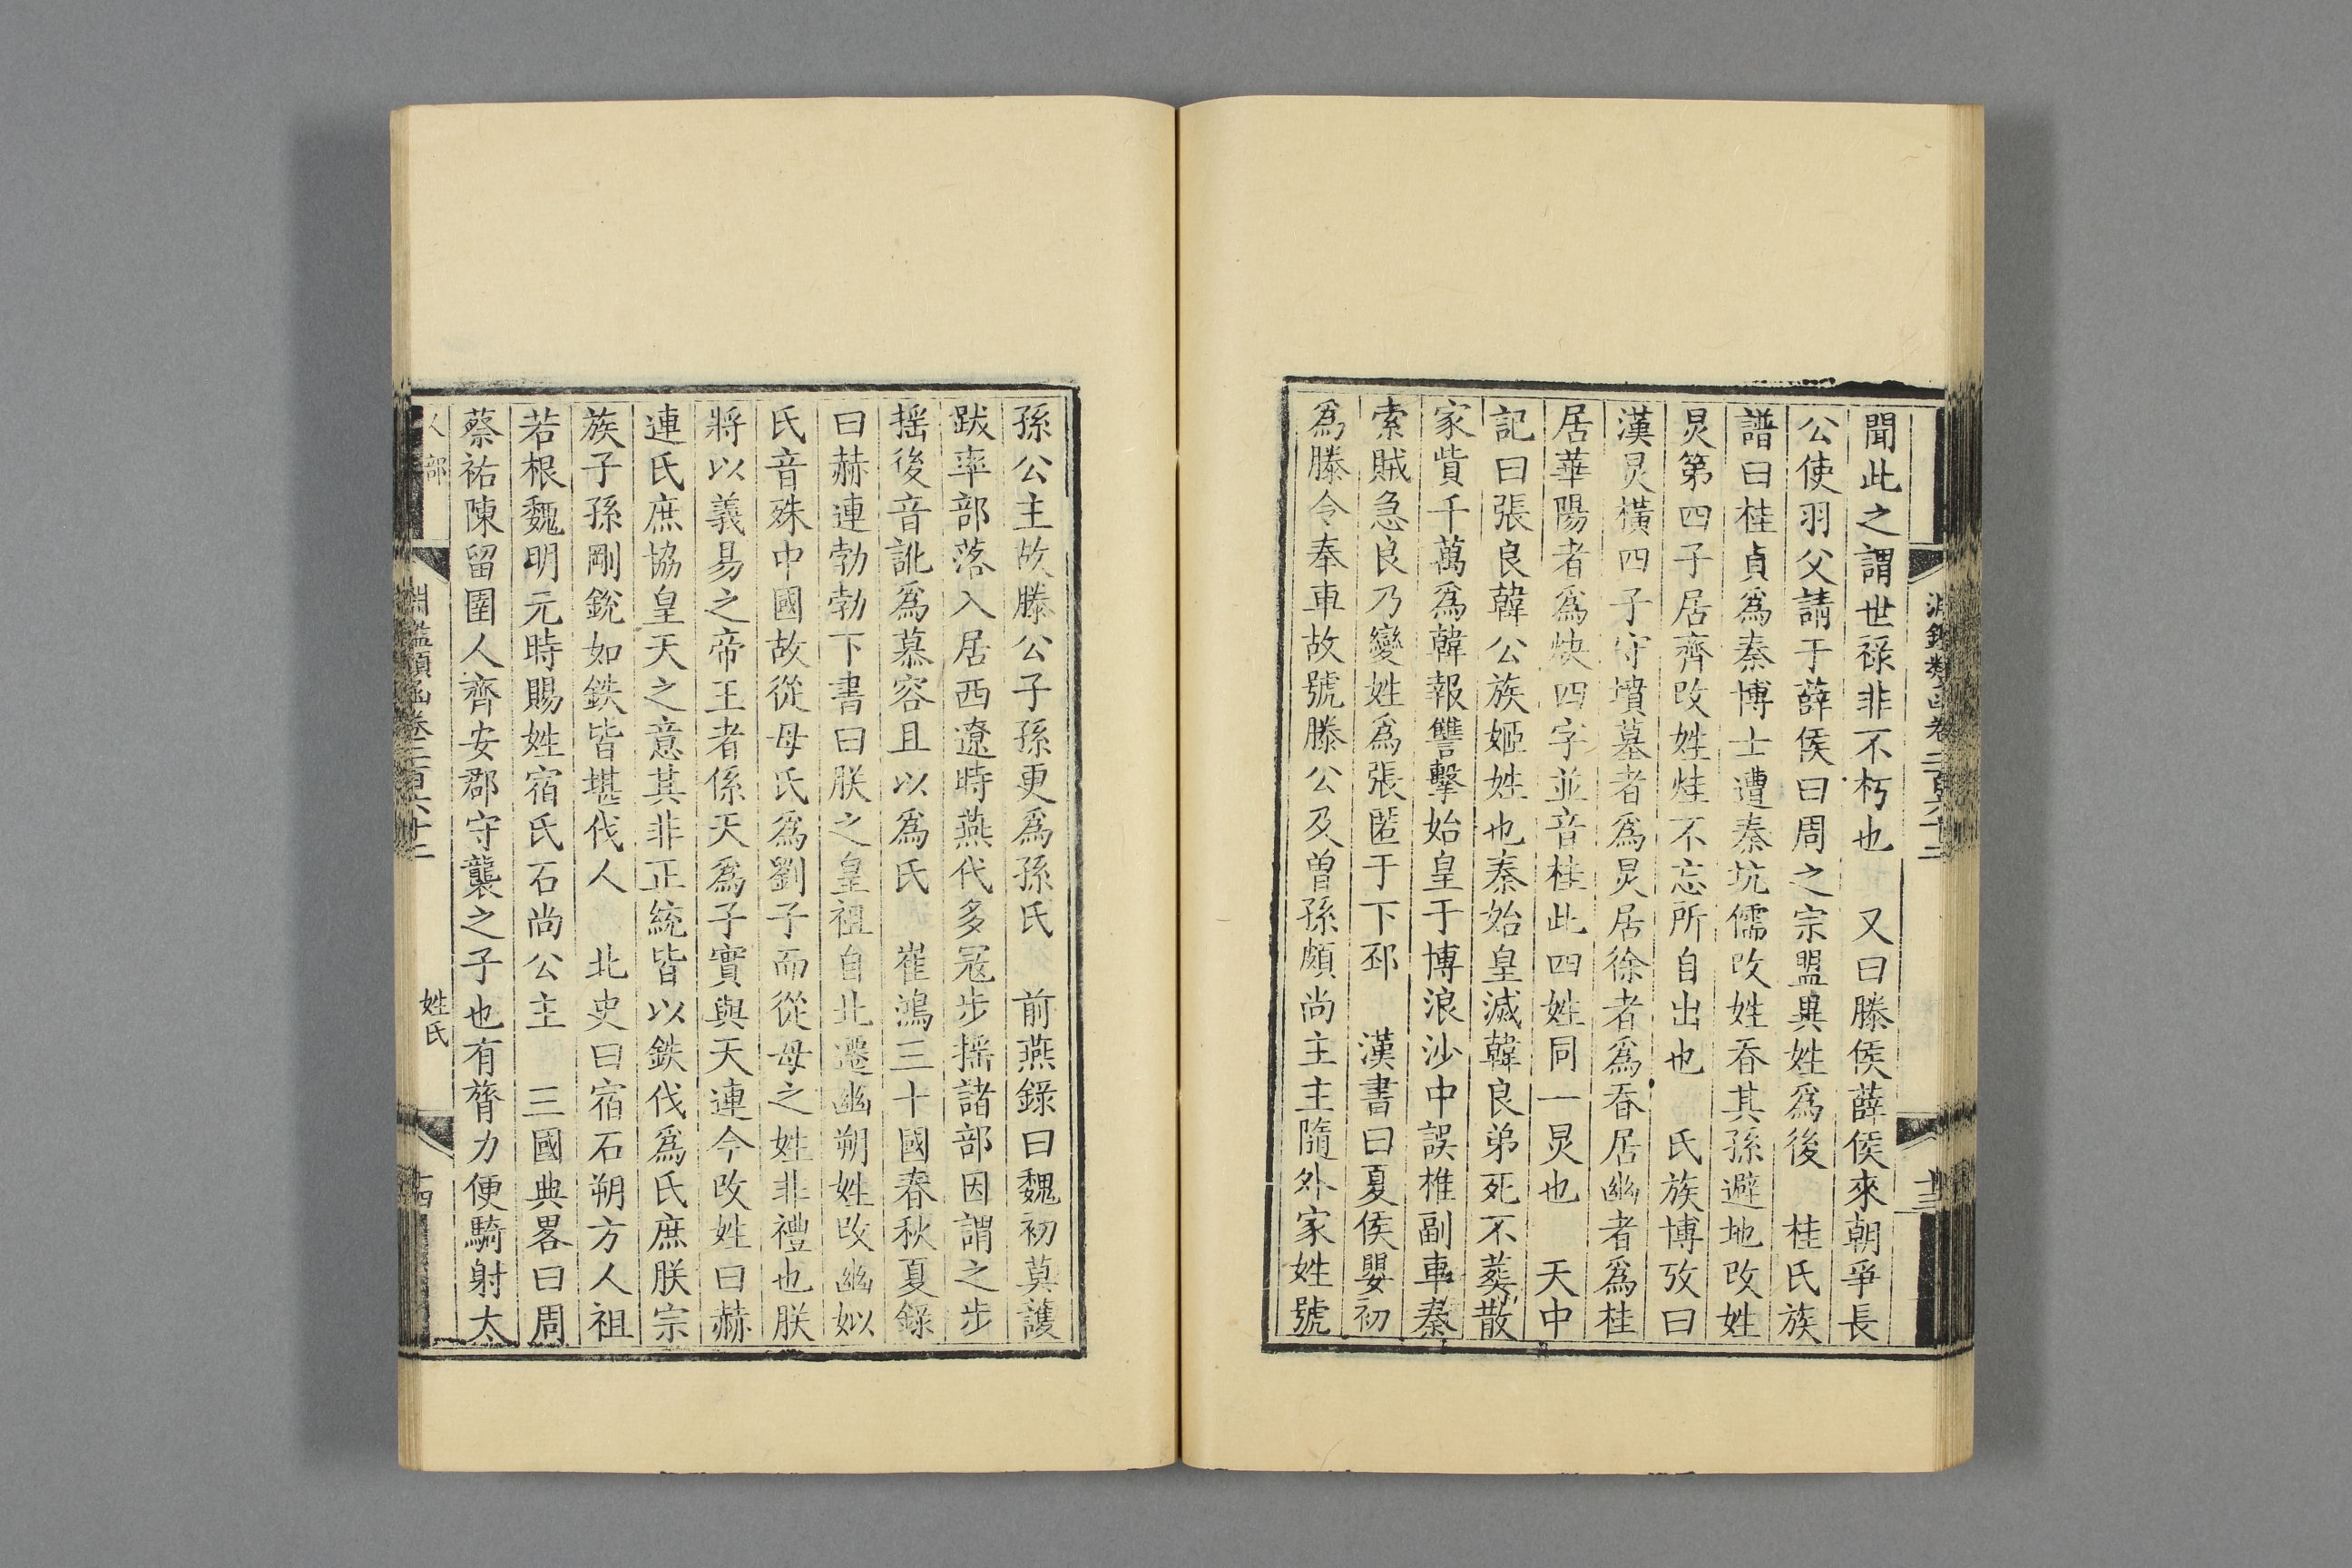 淵鑑類函卷二百六十二
十三
聞此之謂世祿非不朽也　又曰滕侯薛侯來朝爭長
公使羽父請于薛侯曰周之宗盟異姓爲後　桂氏族
譜曰桂貞爲秦博士遭秦坑儒改姓昋其孫避地改姓
炅第四子居齊改姓炔不忘所自出也　氏族博攷曰
漢炅橫四子守墳墓者爲炅居徐者爲昋居幽者爲桂
居華陽者爲炔四字並音桂此四姓同一炅也　天中
記曰張良韓公族姬姓也秦始皇滅韓良弟死不葬散
家貲千萬爲韓報讐擊始皇于博浪沙中誤椎副車秦
索賊急良乃變姓爲張匿于下邳　漢書曰夏侯嬰初
爲滕令奉車故號滕公及曾孫頗尚主主隨外家姓號
孫公主故滕公子孫更爲孫氏　前燕錄曰魏初莫護
跋率部落入居西遼時燕代多冠步搖諸部因謂之步
搖後音訛爲慕容且以爲氏　崔鴻三十國春秋夏錄
曰赫連勃勃下書曰朕之皇祖自北遷幽朔姓改幽姒
氏音殊中國故從母氏爲劉子而從母之姓非禮也朕
將以義易之帝王者係天爲子實與天連今改姓曰赫
連氏庶協皇天之意其非正統皆以鉄伐爲氏庶朕宗
族子孫剛銳如鉄皆堪伐人　北史曰宿石朔方人祖
若根魏明元時賜姓宿氏石尚公主　三國典畧曰周
蔡祐陳留圉人齊安郡守襲之子也有膂力便騎射太
人部
淵鑑類函卷二百六十二
姓氏
十四